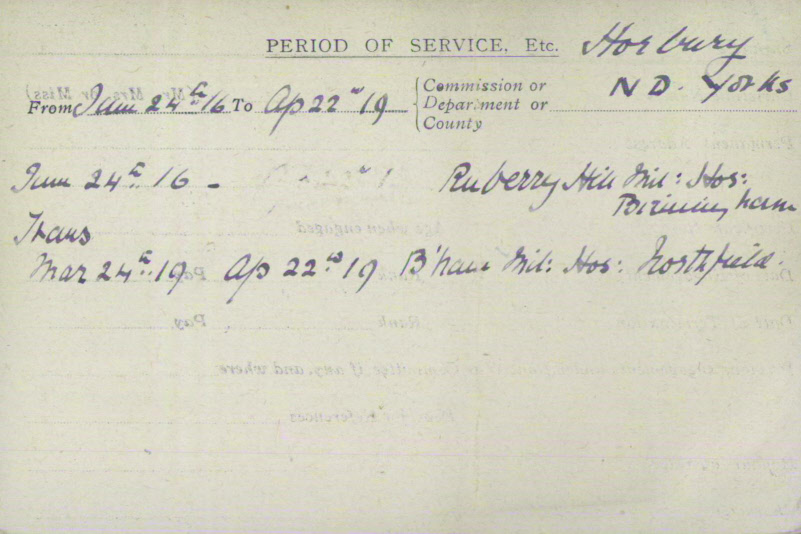 PERIOD OF SERVICE, Etc. Horbury
From Jan 24th 16 To Ap 22nd 19 Commission or Department or County N D. Yorks
Jan 24th 16 - Ruberry Hill Mil: Hos:
Birmingham
Trans
Mar 24th 19 Ap 22nd 19 B'ham Mil: Hos: Northfield.